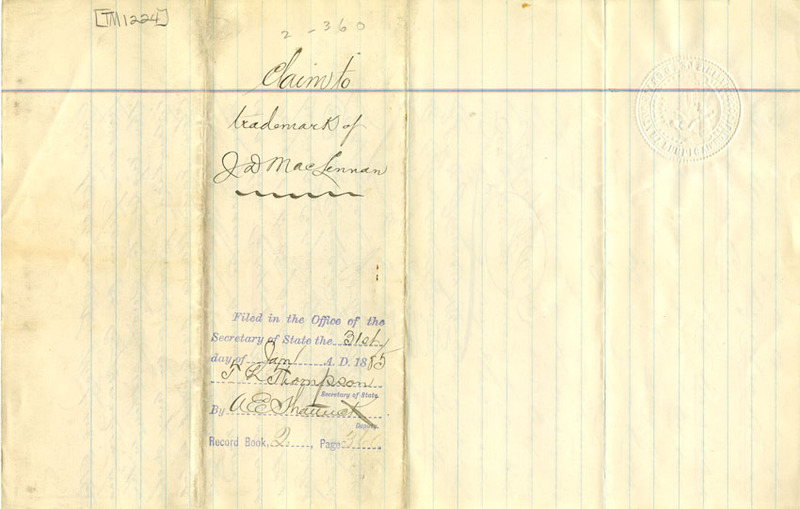 [TM1224]
2-360
Claim to
trademark of
J D MacLennan
Filed in the Office of the
Secretary of State the 31st
day of Jan A. D. 1885
T L Thompson
Secretary of State.
By A E Shattuck
Deputy.
Record Book, 2, Page 360.